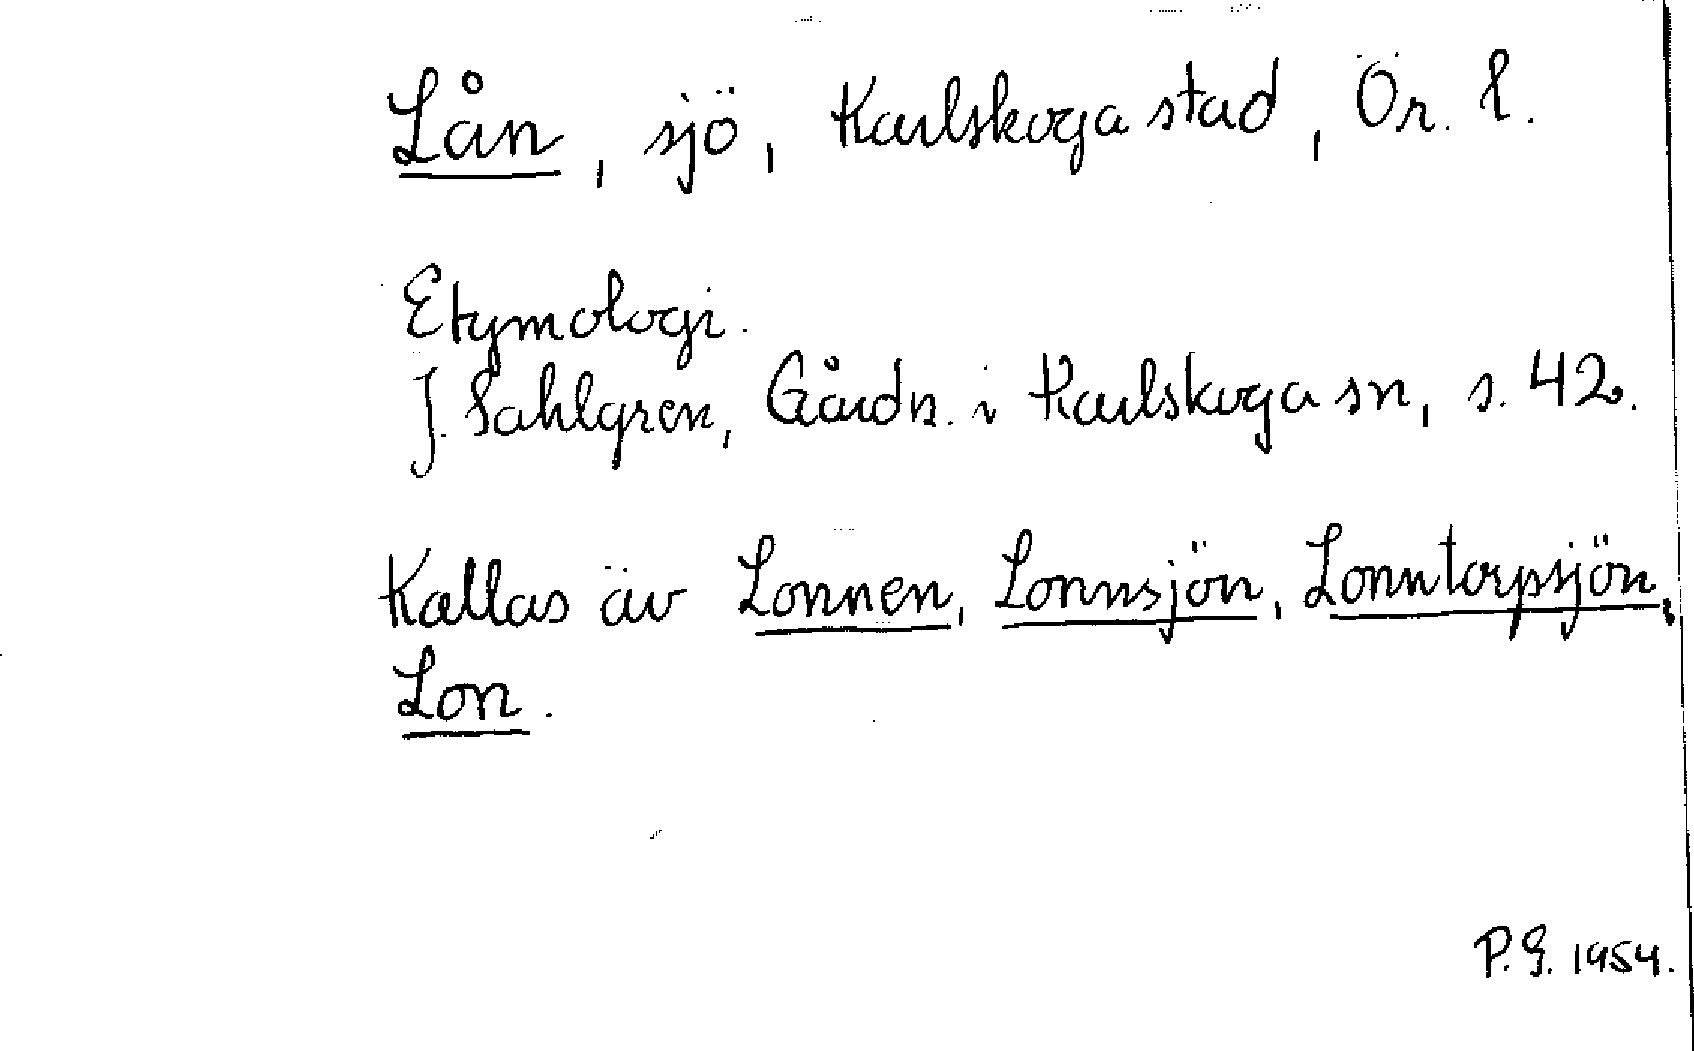 Lån, sjö, Karlskoga stad, Ör. l.
Etymologi.
J. Sahlgren, Gårdn. i Karlskoga sn, s. 42.
Kallas äv Lonnen, Lonnsjön, Lonntorpsjön,
Lon.
P.G. 1954.